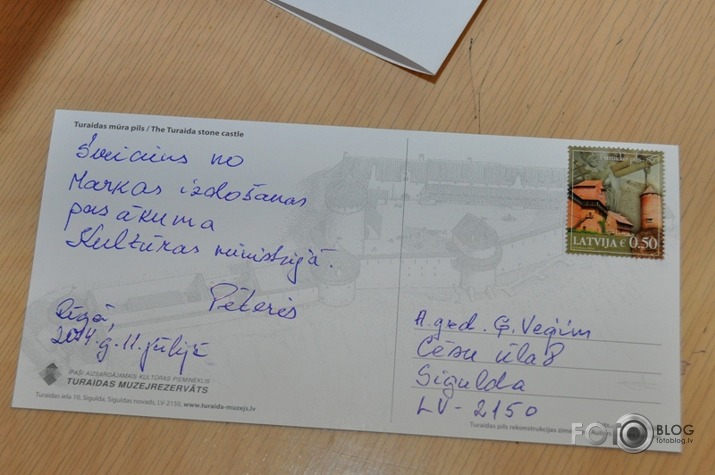 Turaidas mūra pils / The Turaida stone castle
Sveiciens no
Markas izdošanas
pasākuma
Kultūras ministrijā.
Pēteris
Rīgā,
2014.g. 11.jūlijā
ĪPAŠI AIZSARGĀJAMAIS KULTŪRAS PIEMINEKLIS
TURAIDAS MUZEJREZERVĀTS
Turaidas iela 10, Sigulda, Siguldas novads, LV-2150, www.turaida-muzejs.lv
LATVIJA € 0.50
A.god. Ģ. Veģim
Cēsu ielā 8
Sigulda
LV-2150
Turaidas pils rekonstrukcijas
FOTO BLOG
fotoblog.lv